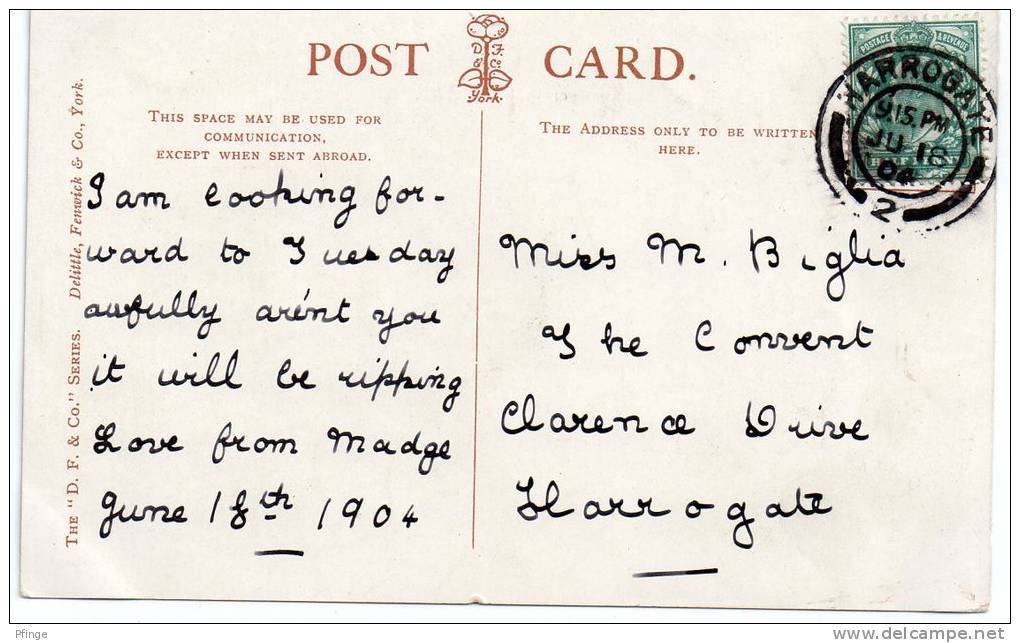 POST CARD.
D F
& Co
York.
THIS SPACE MAY BE USED FOR
COMMUNICATION,
EXCEPT WHEN SENT ABROAD.
THE ADDRESS ONLY TO BE WRITTEN
HERE.
POSTAGE & REVENUE
HARROGATE
9.15 PM
JU 18
04
2
THE "D. F. & CO." SERIES. Delittle, Fenwick & Co., York.
I am looking for-
ward to Tuesday
awfully are'nt you
it will be ripping
Love from Madge
June 18th 1904
Miss M. Biglia
The Convent
Clarence Drive
Harrogate
Pfinge
http://www.delcampe.net